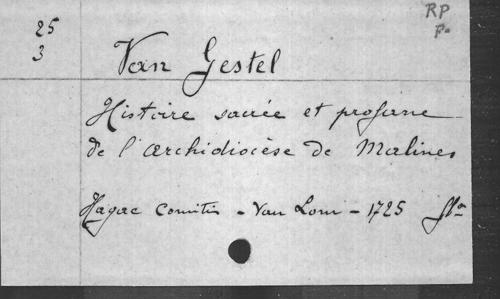 RP
Fo
25
3
Van Gestel
Histoire sacrée et profane
de l'archidiocèse de Malines
Hagae Comitis - Van Lom - 1725 flo